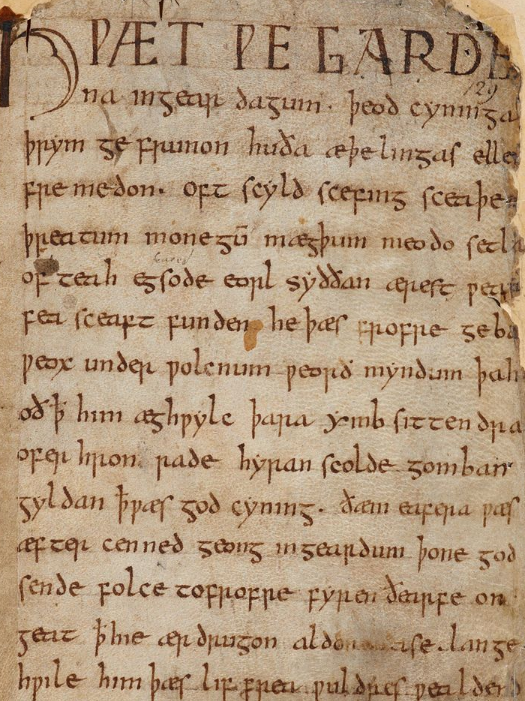 HǷÆT ǷE GARDE
na ingear dagum. þeod cyninga
þrym ge frunon huða æþelingas elle
fremedon. oft scyld scefing sceaþe
þreatum monegū mægþum meodo setl
of teah egsode eorl syððan ærest ƿear
fea sceaft funden he þæs frofre geba
ƿeox under ƿolcnum ƿeorð myndum þah
oð ꝥ him æghƿylc þara ymb sittendra
ofer hron rade hyran scolde gomban
gyldan ꝥ ƿæs god cyning. ðæm eafera ƿæs
æfter cenned geong ingeardum þone god
sende folce tofrofre fyren ðearfe on
geat ꝥ hie ær drugon aldor ase lange
hƿile him þæs lif frea ƿuldres ƿealdend